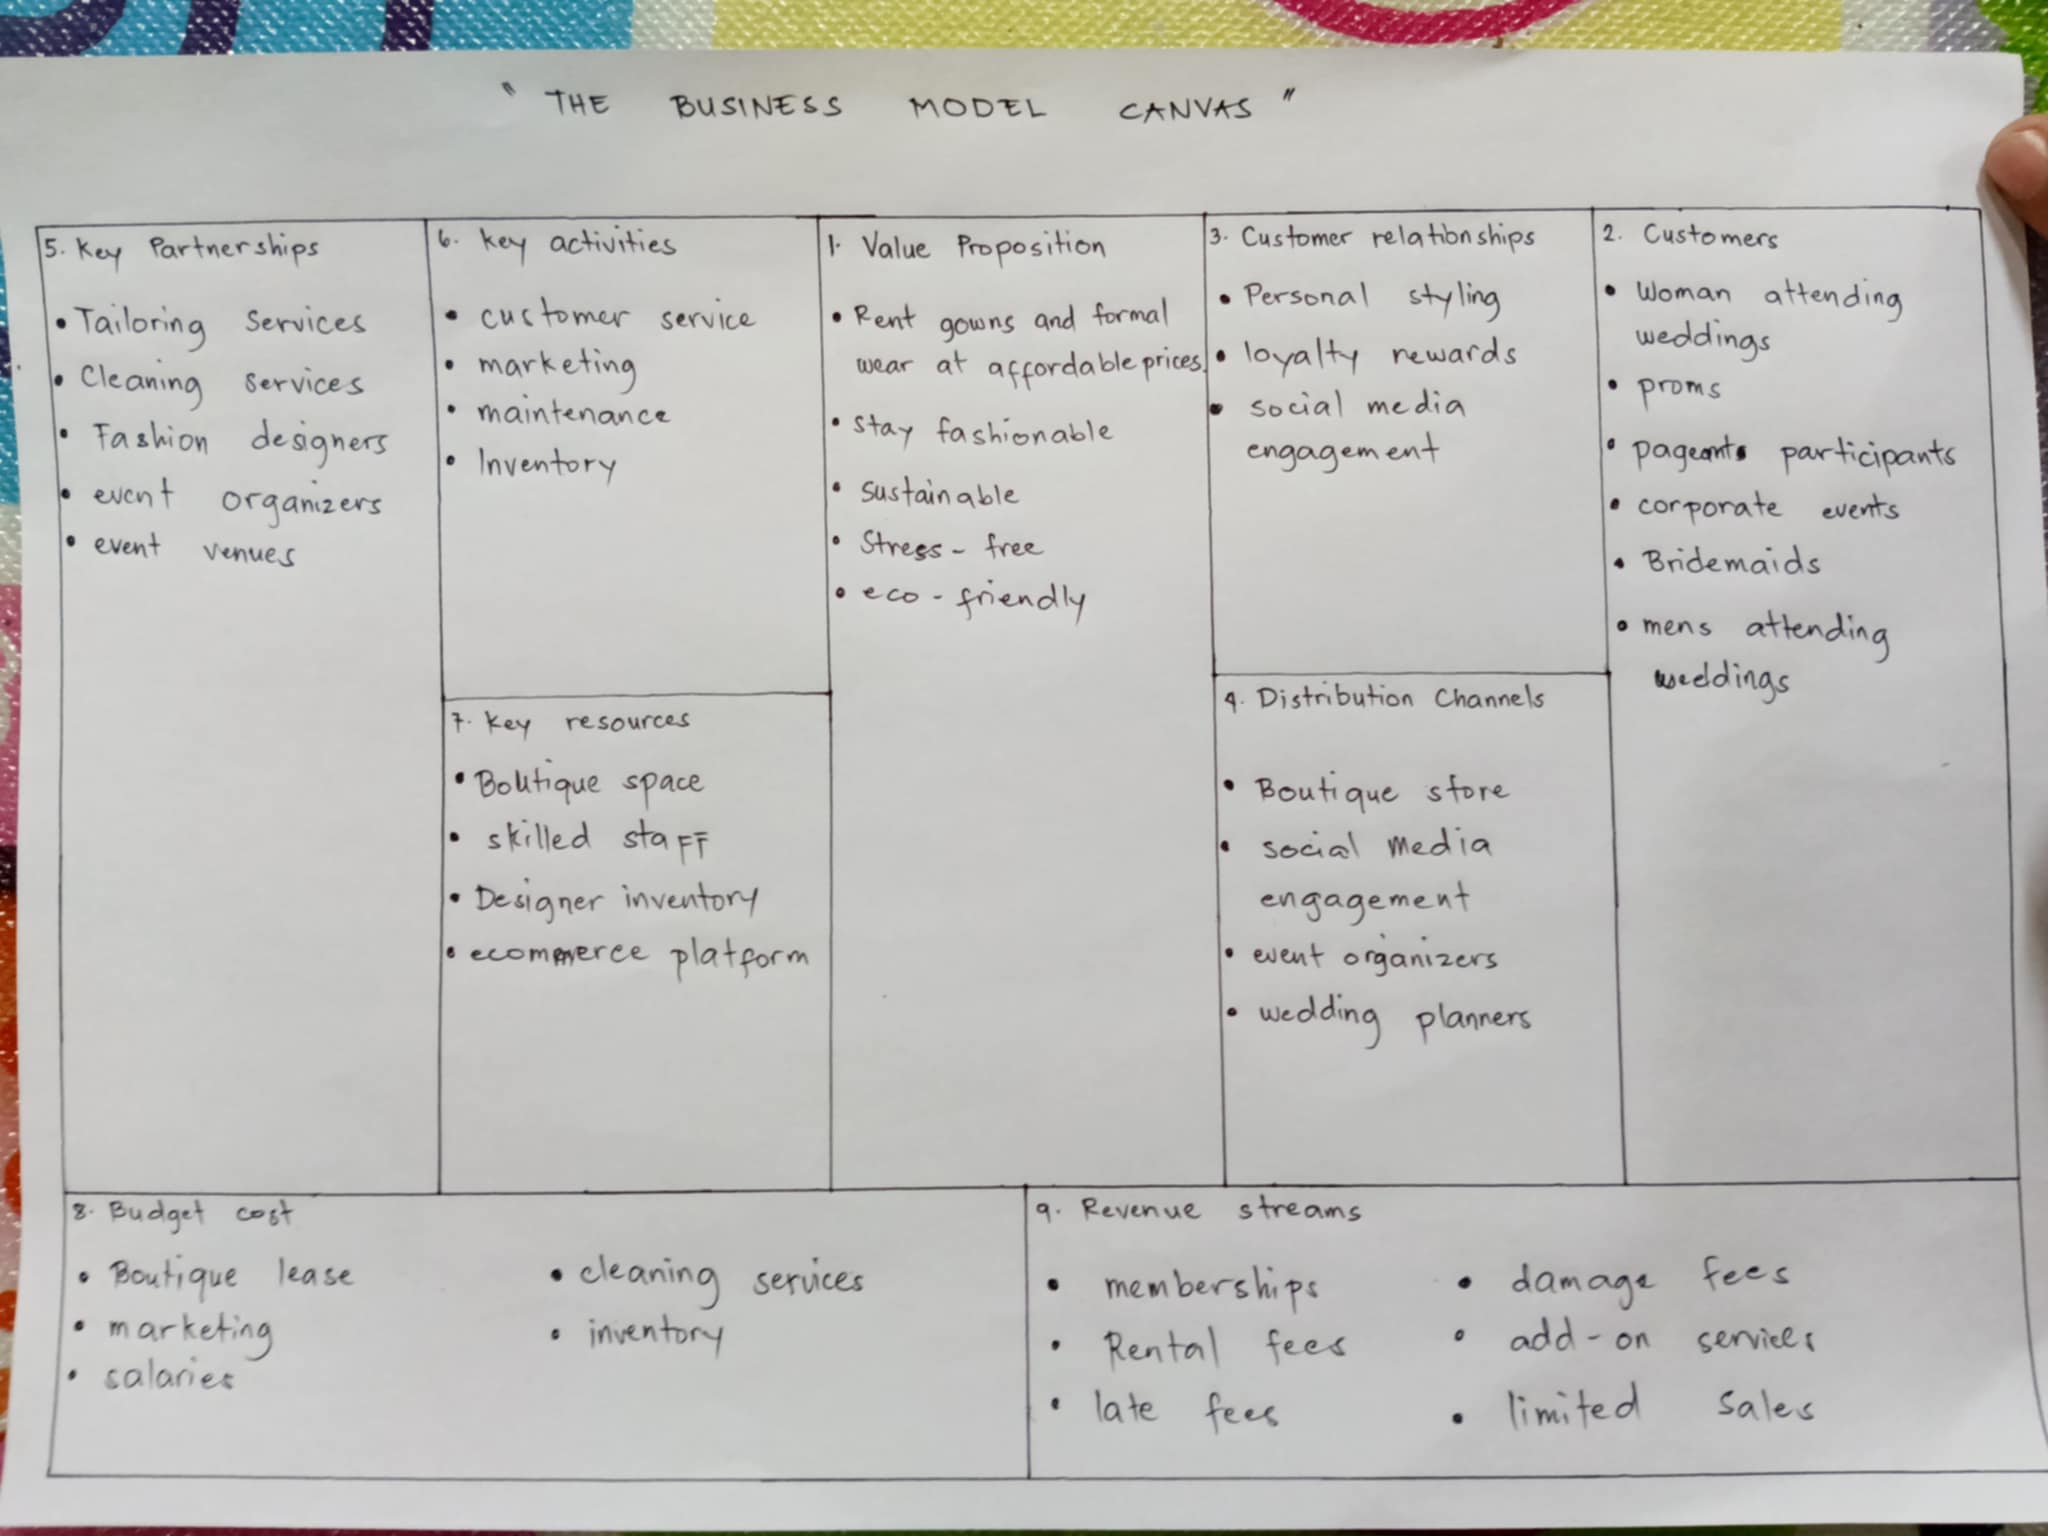 " THE BUSINESS MODEL CANVAS "
5. Key Partnerships
• Tailoring Services
• Cleaning services
• Fashion designers
• event organizers
• event venues
6. key activities
• customer service
• marketing
• maintenance
• Inventory
7. key resources
• Boutique space
• skilled staff
• Designer inventory
• ecommerce platform
1. Value Proposition
• Rent gowns and formal
wear at affordable prices.
• stay fashionable
• sustainable
• Stress - free
• eco - friendly
3. Customer relationships
• Personal styling
• loyalty rewards
• social media
engagement
4. Distribution Channels
• Boutique store
• social media
engagement
• event organizers
• wedding planners
2. Customers
• Woman attending
weddings
• proms
• pageants participants
• corporate events
• Bridemaids
• mens attending
weddings
8. Budget cost
• Boutique lease
• marketing
• salaries
• cleaning services
• inventory
9. Revenue streams
• memberships
• Rental fees
• late fees
• damage fees
• add-on services
• limited sales